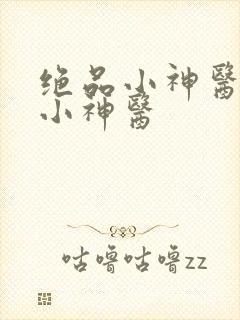 绝品小神醫
小神醫
咕噜咕噜zz